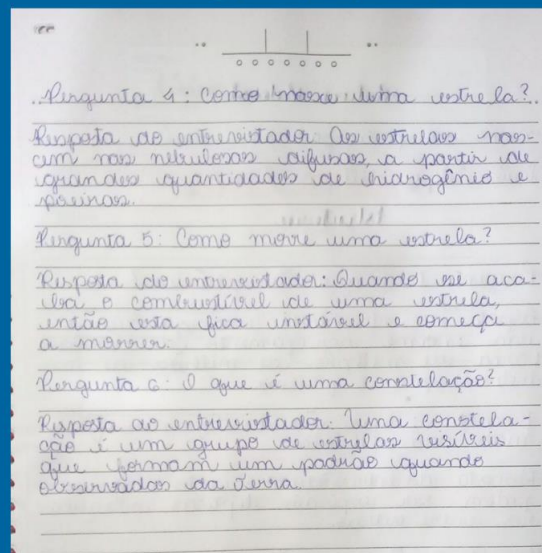 Pergunta 4: Como nasce uma estrela?
Resposta do entrevistador: As estrelas nas-
cem nas nebulosas difusas, a partir de
grandes quantidades de hidrogênio e
poeiras.
Pergunta 5: Como morre uma estrela?
Resposta do entrevistador: Quando se aca-
ba o combustível de uma estrela,
então esta fica instável e começa
a morrer.
Pergunta 6: O que é uma constelação?
Resposta do entrevistador: Uma constela-
ção é um grupo de estrelas visíveis
que formam um padrão quando
observados da Terra.